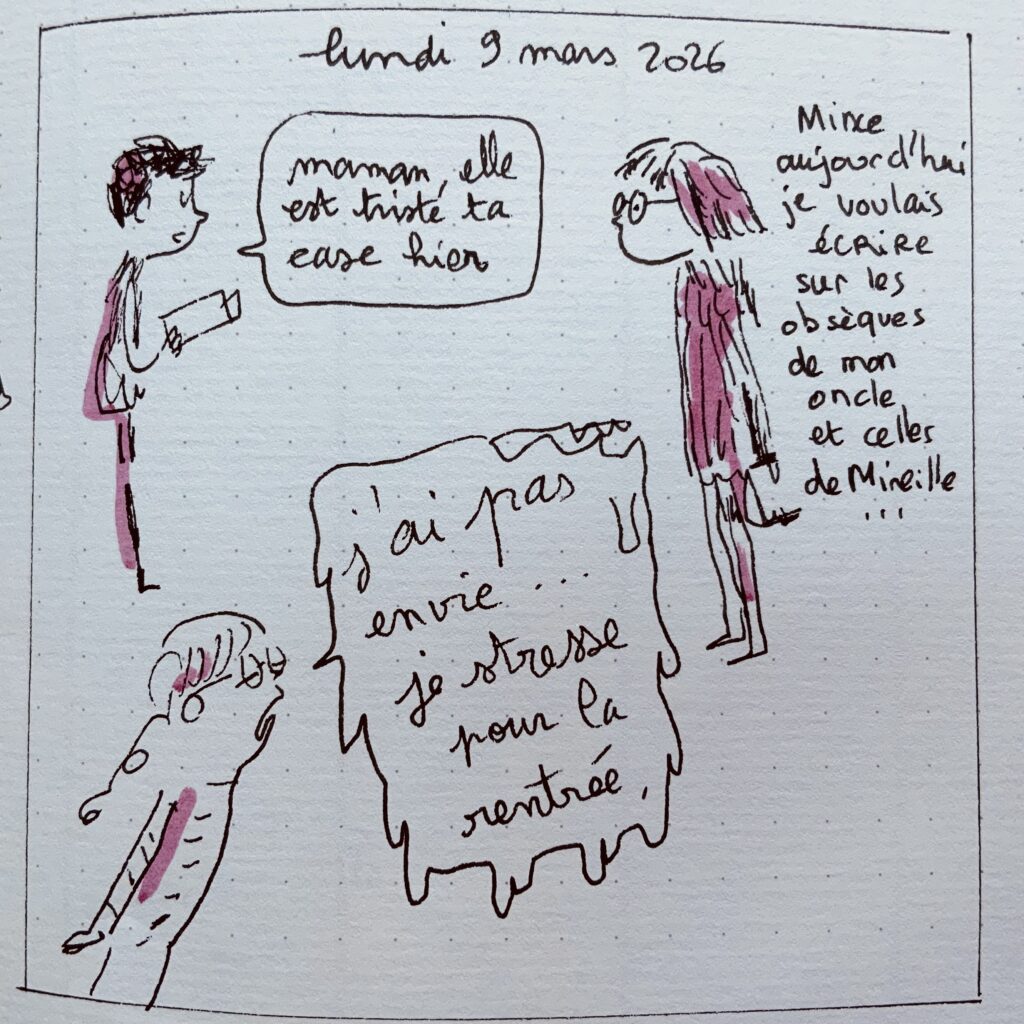 lundi 9 mars 2026
maman, elle
est triste ta
case hier
Mince
aujourd'hui
je voulais
écrire
sur les
obsèques
de mon
oncle
et celles
de Mireille
...
j'ai pas
envie...
je stresse
pour la
rentrée.